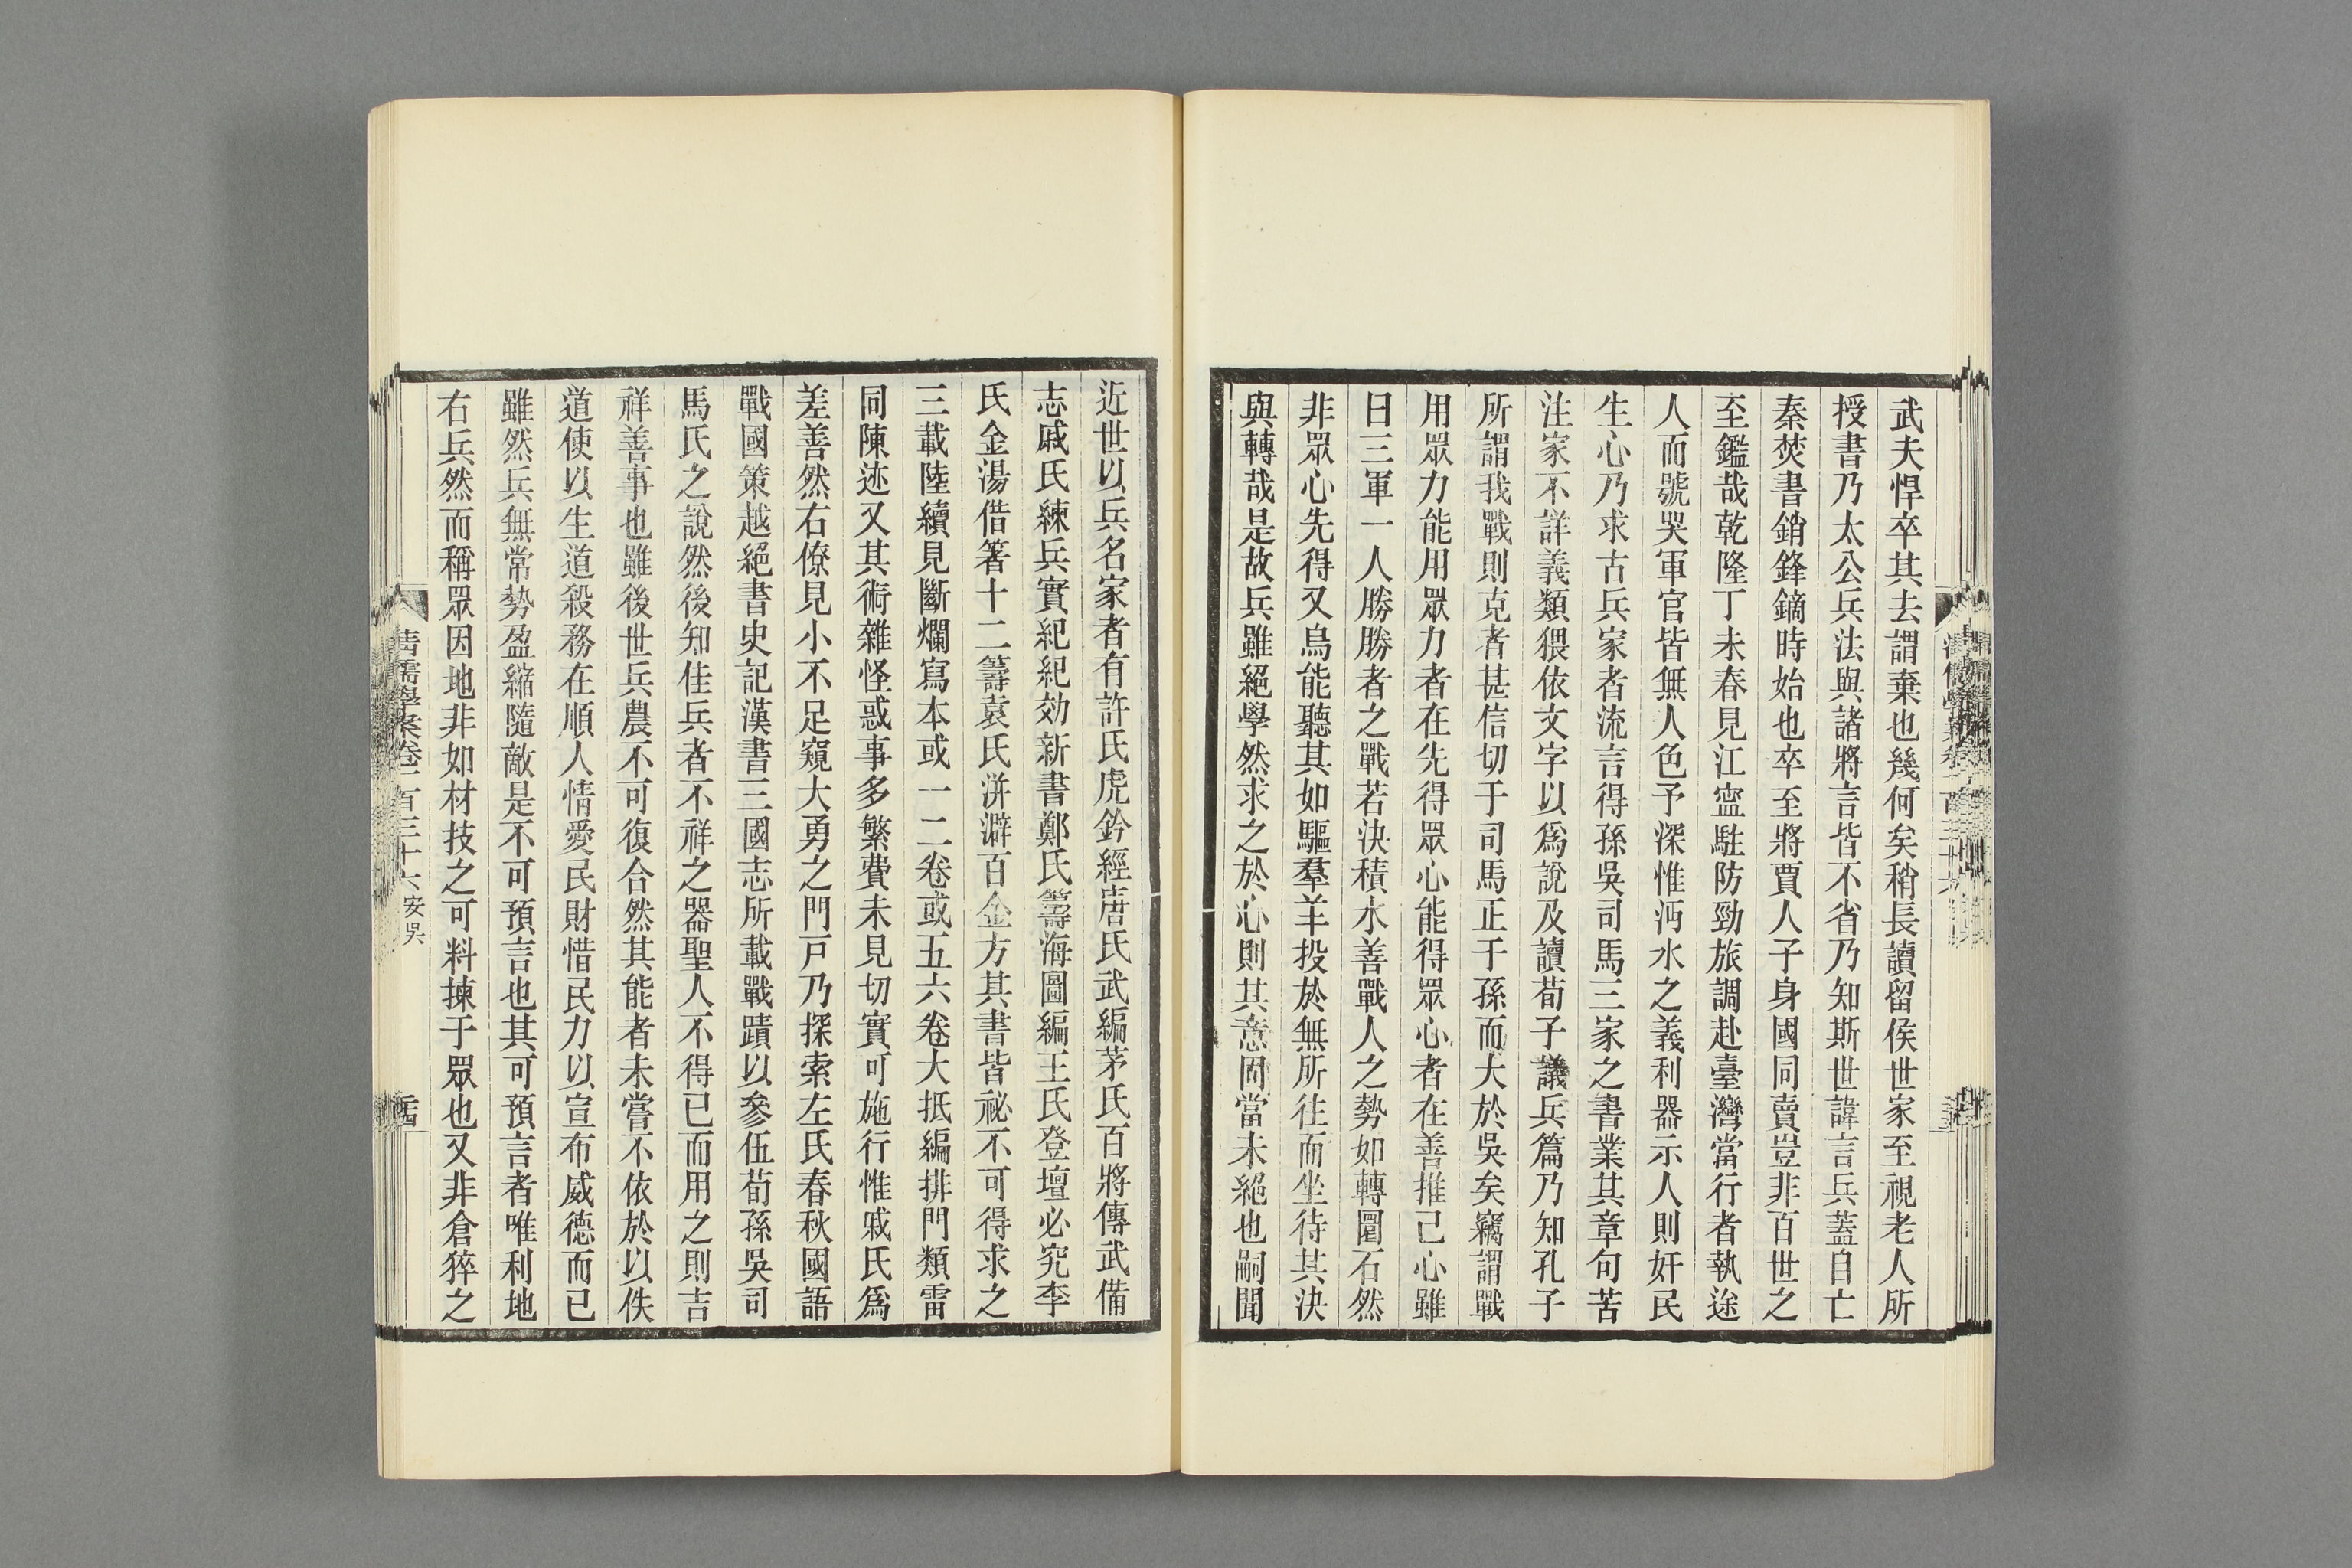 武夫悍卒其去謂棄也幾何矣稍長讀留侯世家至視老人所
授書乃太公兵法與諸將言皆不省乃知斯世諱言兵蓋自亡
秦焚書銷鋒鏑時始也卒至將賈人子身國同賣豈非百世之
至鑑哉乾隆丁未春見江寍駐防勁旅調赴臺灣當行者執途
人而號哭軍官皆無人色予深惟沔水之義利器示人則奸民
生心乃求古兵家者流言得孫吳司馬三家之書業其章句苦
注家不詳義類猥依文字以爲說及讀荀子議兵篇乃知孔子
所謂我戰則克者甚信切于司馬正于孫而大於吳矣竊謂戰
用眾力能用眾力者在先得眾心能得眾心者在善推己心雖
日三軍一人勝勝者之戰若決積水善戰人之勢如轉圜石然
非眾心先得又烏能聽其如驅羣羊投於無所往而坐待其決
與轉哉是故兵雖絕學然求之於心則其意固當未絕也嗣聞
近世以兵名家者有許氏虎鈐經唐氏武編茅氏百將傳武備
志戚氏練兵實紀紀効新書鄭氏籌海圖編王氏登壇必究李
氏金湯借箸十二籌袁氏洴澼百金方其書皆祕不可得求之
三載陸續見斷爛寫本或一二卷或五六卷大抵編排門類雷
同陳迹又其術雜怪惑事多繁費未見切實可施行惟戚氏爲
差善然右僚見小不足窺大勇之門戸乃探索左氏春秋國語
戰國策越絕書史記漢書三國志所載戰蹟以參伍荀孫吳司
馬氏之說然後知佳兵者不祥之器聖人不得已而用之則吉
祥善事也雖後世兵農不可復合然其能者未嘗不依於以佚
道使以生道殺務在順人情愛民財惜民力以宣布威德而已
雖然兵無常勢盈縮隨敵是不可預言也其可預言者唯利地
右兵然而稱眾因地非如材技之可料揀于眾也又非倉猝之
清儒學案卷一百三十六 安吳